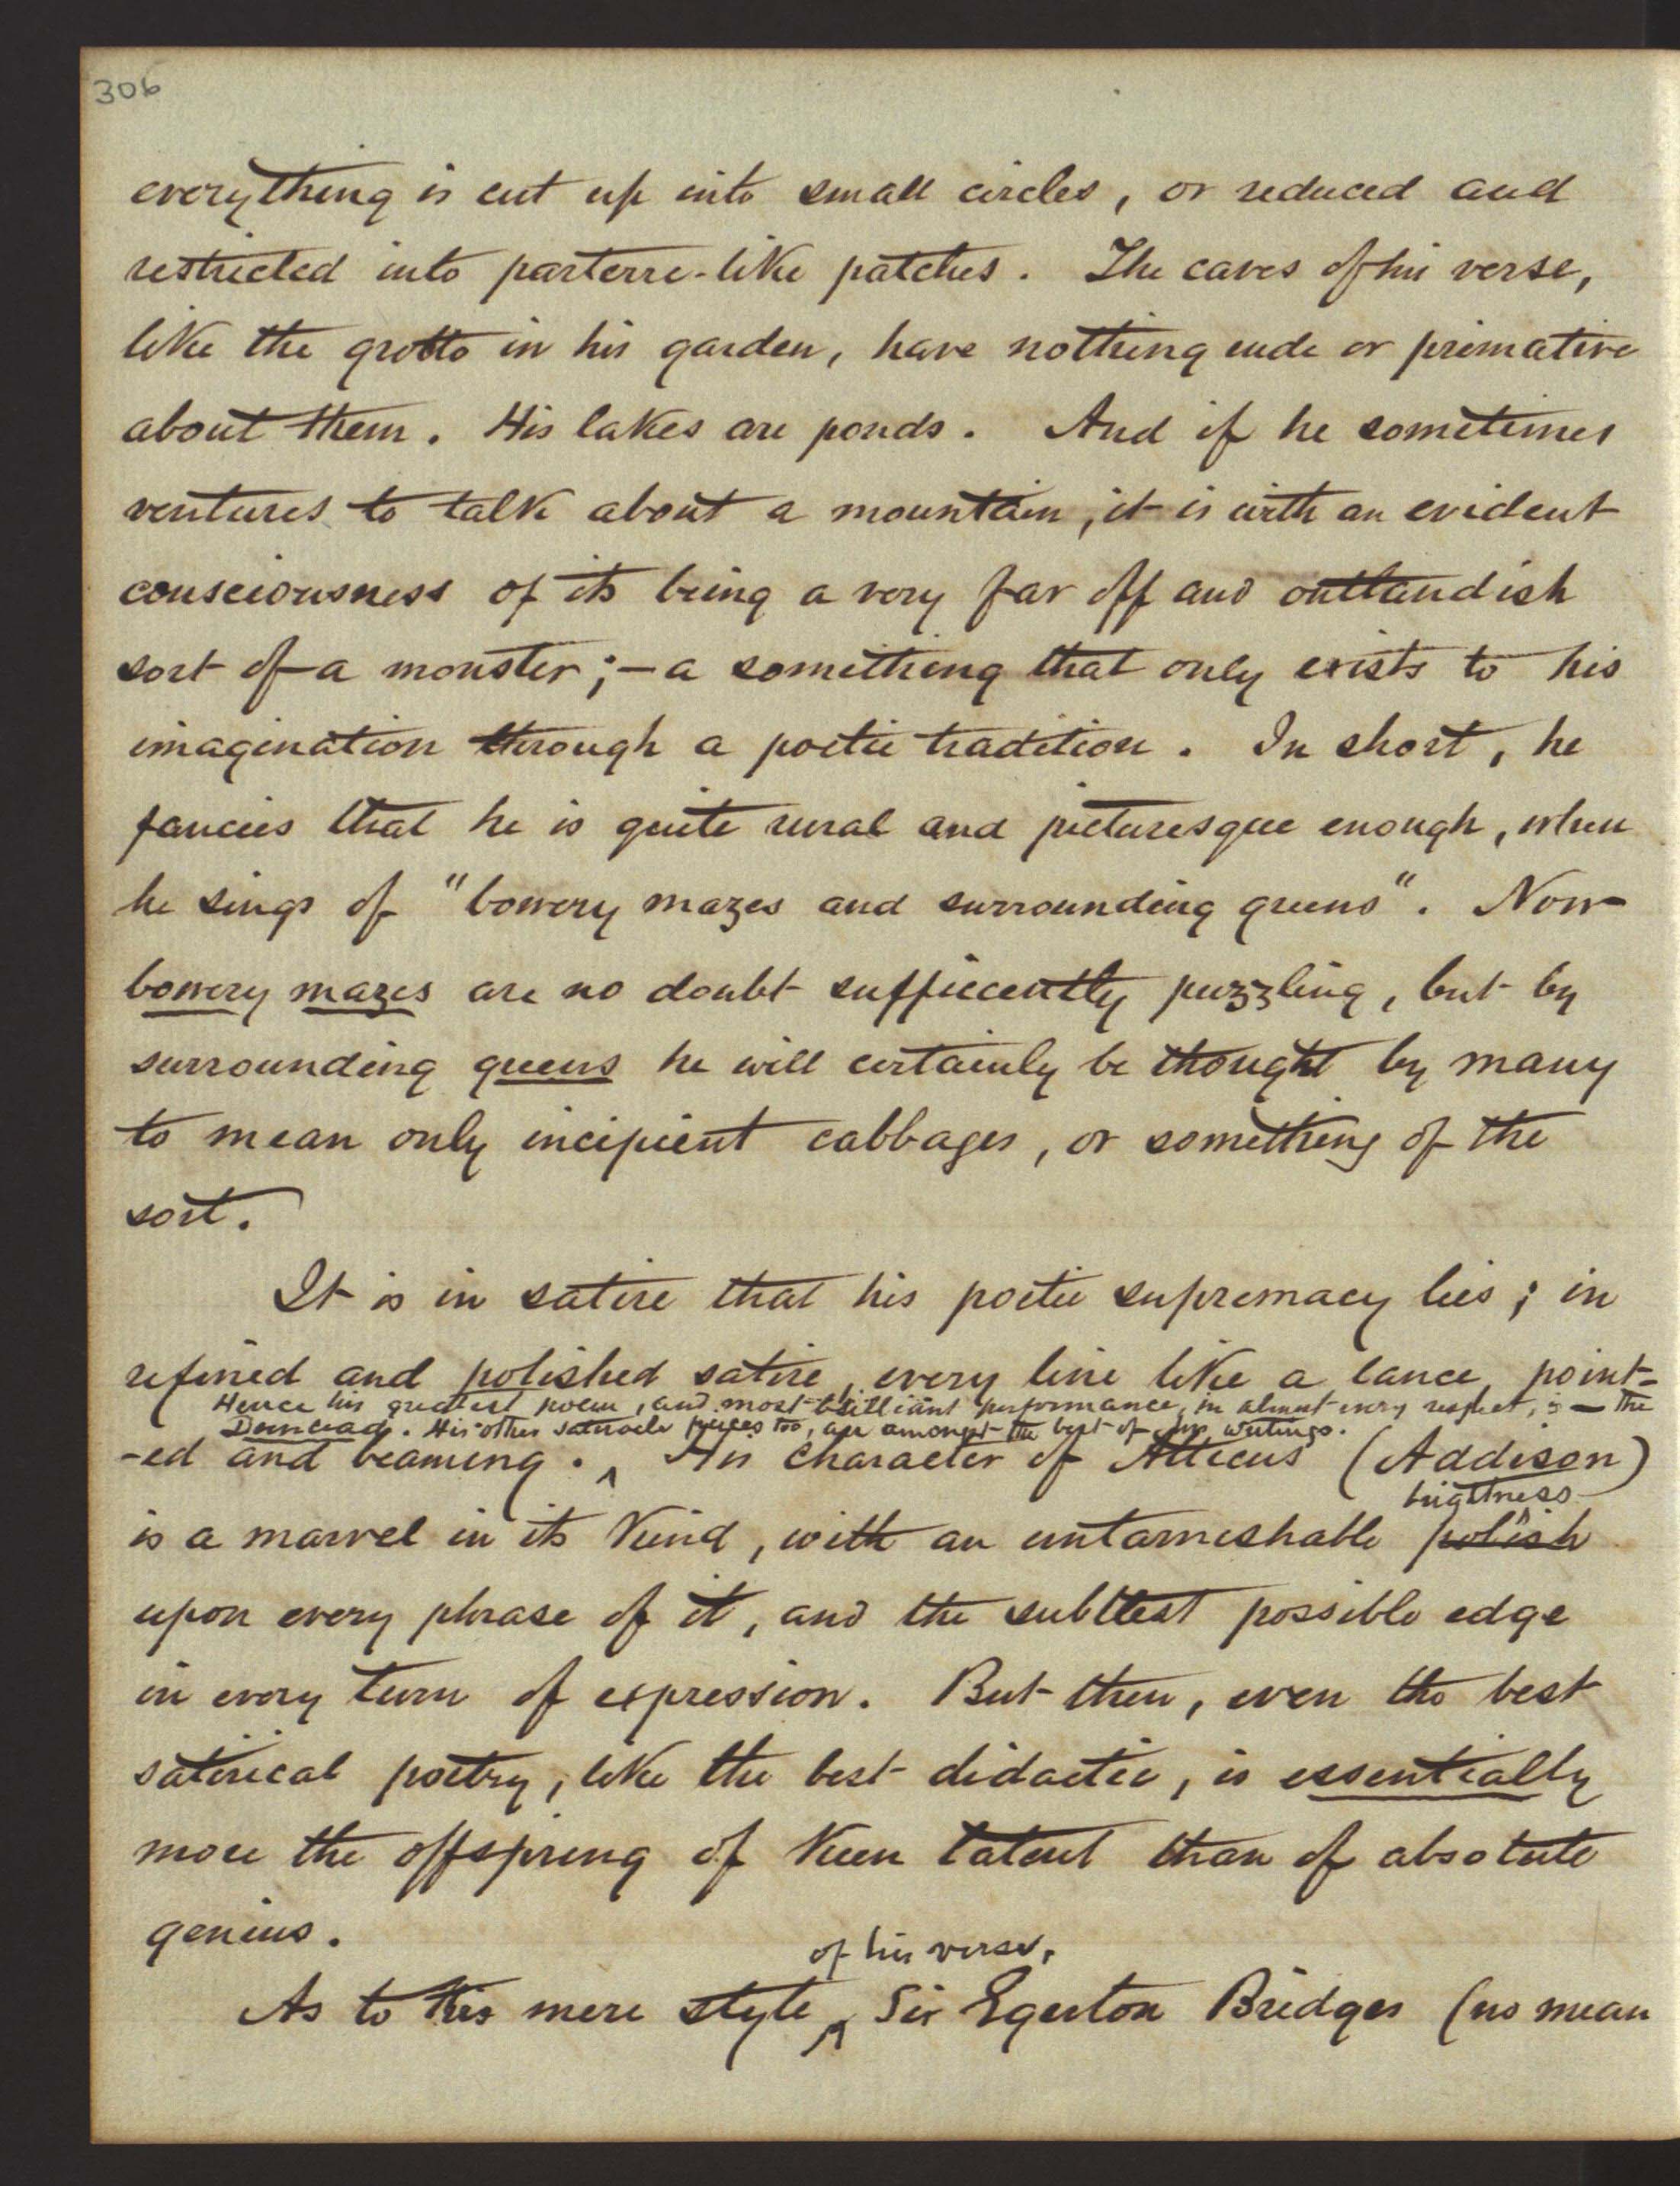 306
everything is cut up into small circles, or reduced and
restricted into parterre-like patches. The caves of his verse,
like the grotto in his garden, have nothing rude or primative
about them. His lakes are ponds. And if he sometimes
ventures to talk about a mountain, it is with an evident
consciousness of its being a very far off and outlandish
sort of a monster; — a something that only exists to his
imagination through a poetic tradition. In short, he
fancies that he is quite rural and picturesque enough, when
he sings of "bowery mazes and surrounding greens". Now
bowery mazes are no doubt sufficiently puzzling, but by
surrounding greens he will certainly be thought by many
to mean only incipient cabbages, or something of the
sort.
It is in satire that his poetic supremacy lies; in
refined and polished satire, every line like a lance, point-
Hence his greatest poem, and most brilliant performance, in almost every respect, is — the
Dunciad. His other satirical pieces too, are amongst the best of his writings.
-ed and beaming. ^ His character of Atticus (Addison)
brightness
is a marvel in its kind, with an untarnishable polish
upon every phrase of it, and the subtlest possible edge
in every turn of expression. But then, even the best
satirical poetry, like the best didactic, is essentially
more the offspring of keen talent than of absolute
genius.
of his verse,
As to the mere style ^ Sir Egerton Bridges (no mean